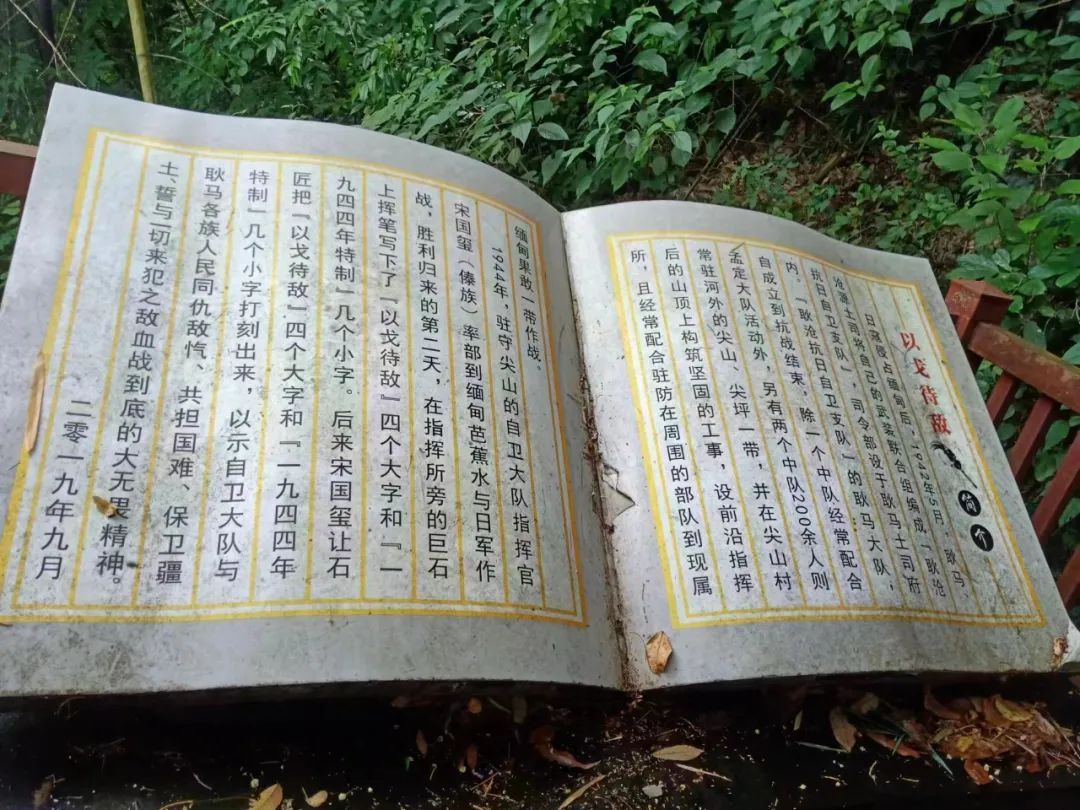 以戈待敌
简介
日寇侵占缅甸后，1942年5月，耿马、
沧源土司将自己的武装联合组编成「耿沧
抗日自卫支队」，司令部设于耿马土司府
内。「耿沧抗日自卫支队」的耿马大队，
自成立到抗战结束，除一个中队经常配合
孟定大队活动外，另有两个中队200余人则
常驻河外的尖山、尖坪一带，并在尖山村
后的山顶上构筑坚固的工事，设前沿指挥
所，且经常配合驻防在周围的部队到现属
缅甸果敢一带作战。
1944年，驻守尖山的自卫大队指挥官
宋国玺（傣族）率部到缅甸芭蕉水与日军作
战，胜利归来的第二天，在指挥所旁的巨石
上挥笔写下了『以戈待敌』四个大字和『一
九四四年特制』几个小字。后来宋国玺让石
匠把『以戈待敌』四个大字和『一九四四年
特制』几个小字打刻出来，以示自卫大队与
耿马各族人民同仇敌忾、共担国难、保卫疆
土、誓与一切来犯之敌血战到底的大无畏精神。
二零一九年九月